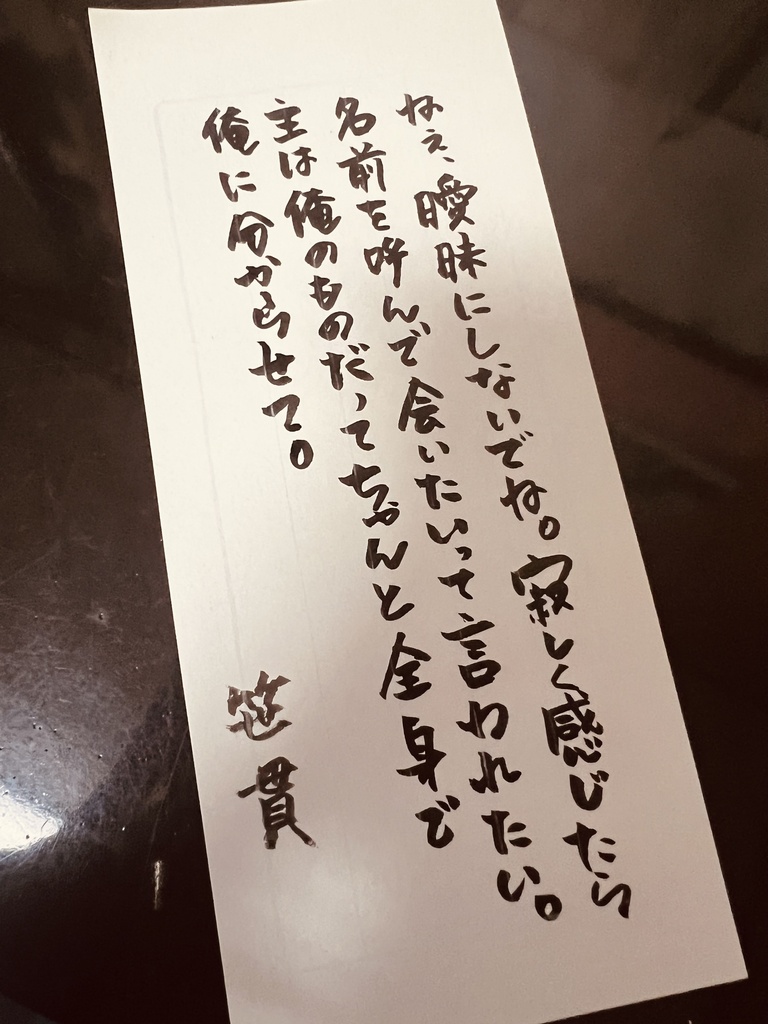 ねえ、曖昧にしないでね。寂しく感じたら
名前を呼んで会いたいって言われたい。
主は俺のものだってちゃんと全身で
俺に分からせて。
笹貫